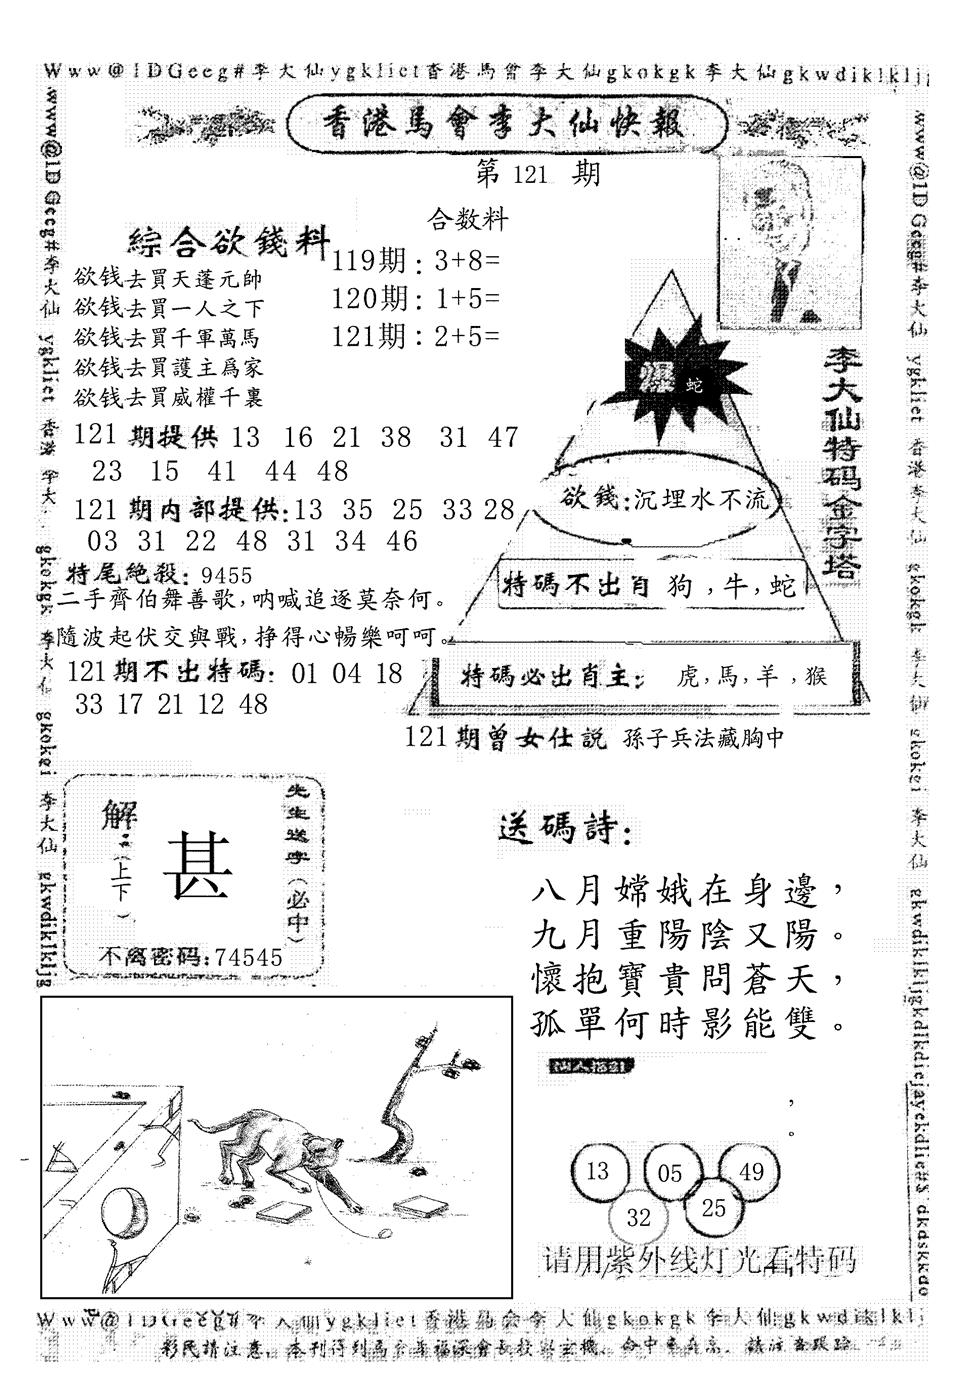 Www@1DGeeg#李大仙ygkliet香港馬會李大仙gkokgk李大仙gkwdiklklj
香港馬會李大仙快報
第 121 期
合数料
綜合欲錢料
119期: 3+8=
120期: 1+5=
121期: 2+5=
欲钱去買天蓬元帥
欲钱去買一人之下
欲钱去買千軍萬馬
欲钱去買護主爲家
欲钱去買威權千裏
121 期提供 13 16 21 38 31 47
23 15 41 44 48
121 期内部提供:13 35 25 33 28
03 31 22 48 31 34 46
特尾絶殺: 9455
二手齊伯舞善歌,呐喊追逐莫奈何。
隨波起伏交與戰,挣得心暢樂呵呵。
121期不出特碼: 01 04 18
33 17 21 12 48
李大仙特码金字塔
爆 蛇
欲錢:沉埋水不流
特碼不出肖 狗,牛,蛇
特碼必出肖主: 虎,馬,羊,猴
121期曾女仕説 孫子兵法藏胸中
先生送字(必中)
解:(上下)
甚
不离密码:74545
送碼詩:
八月嫦娥在身邊,
九月重陽陰又陽。
懷抱寶貴問蒼天,
孤單何時影能雙。
,
。
13 05 49
32 25
请用紫外线灯光看特码
www@1DGeeg#李大仙 ygkliet 香港 李大 gkokgk 李大仙 gkokei 李大仙 gkwdiklkljg
www@1DGeeg#李大仙 ygkliet 香港李大仙 gkokgk 李大仙 gkokei 李大仙 gkwdiklkljgkdlkdiejayekdlie#$ dkdskkdo
Www@1DGeeg#李大仙ygkliet香港馬会李大仙gkokgk李大仙gkwdiklklj
彩民請注意,本刊得到馬